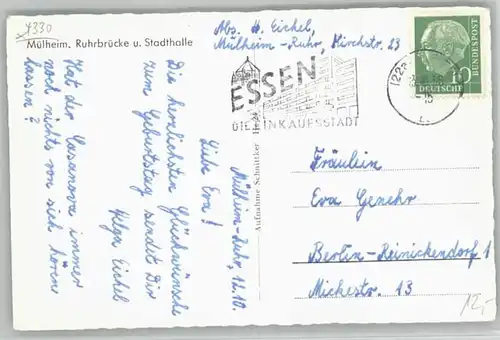 4330
Mülheim. Ruhrbrücke u. Stadthalle
Abs. H. Eichel,
Mülheim-Ruhr, Kirchstr. 23
ESSEN
DIE EINKAUFSSTADT
DEUTSCHE
BUNDESPOST
10
Aufnahme Schnittker
Mülheim-Ruhr, 12.10.
Liebe Eva!
Die herzlichsten Glückwünsche
zum Geburtstag sendet Dir
Helga Eichel
Hat der Casanova immer
noch nichts von sich hören
lassen?
Fräulein
Eva Genehr
Berlin-Reinickendorf 1
Mickestr. 13
12,-